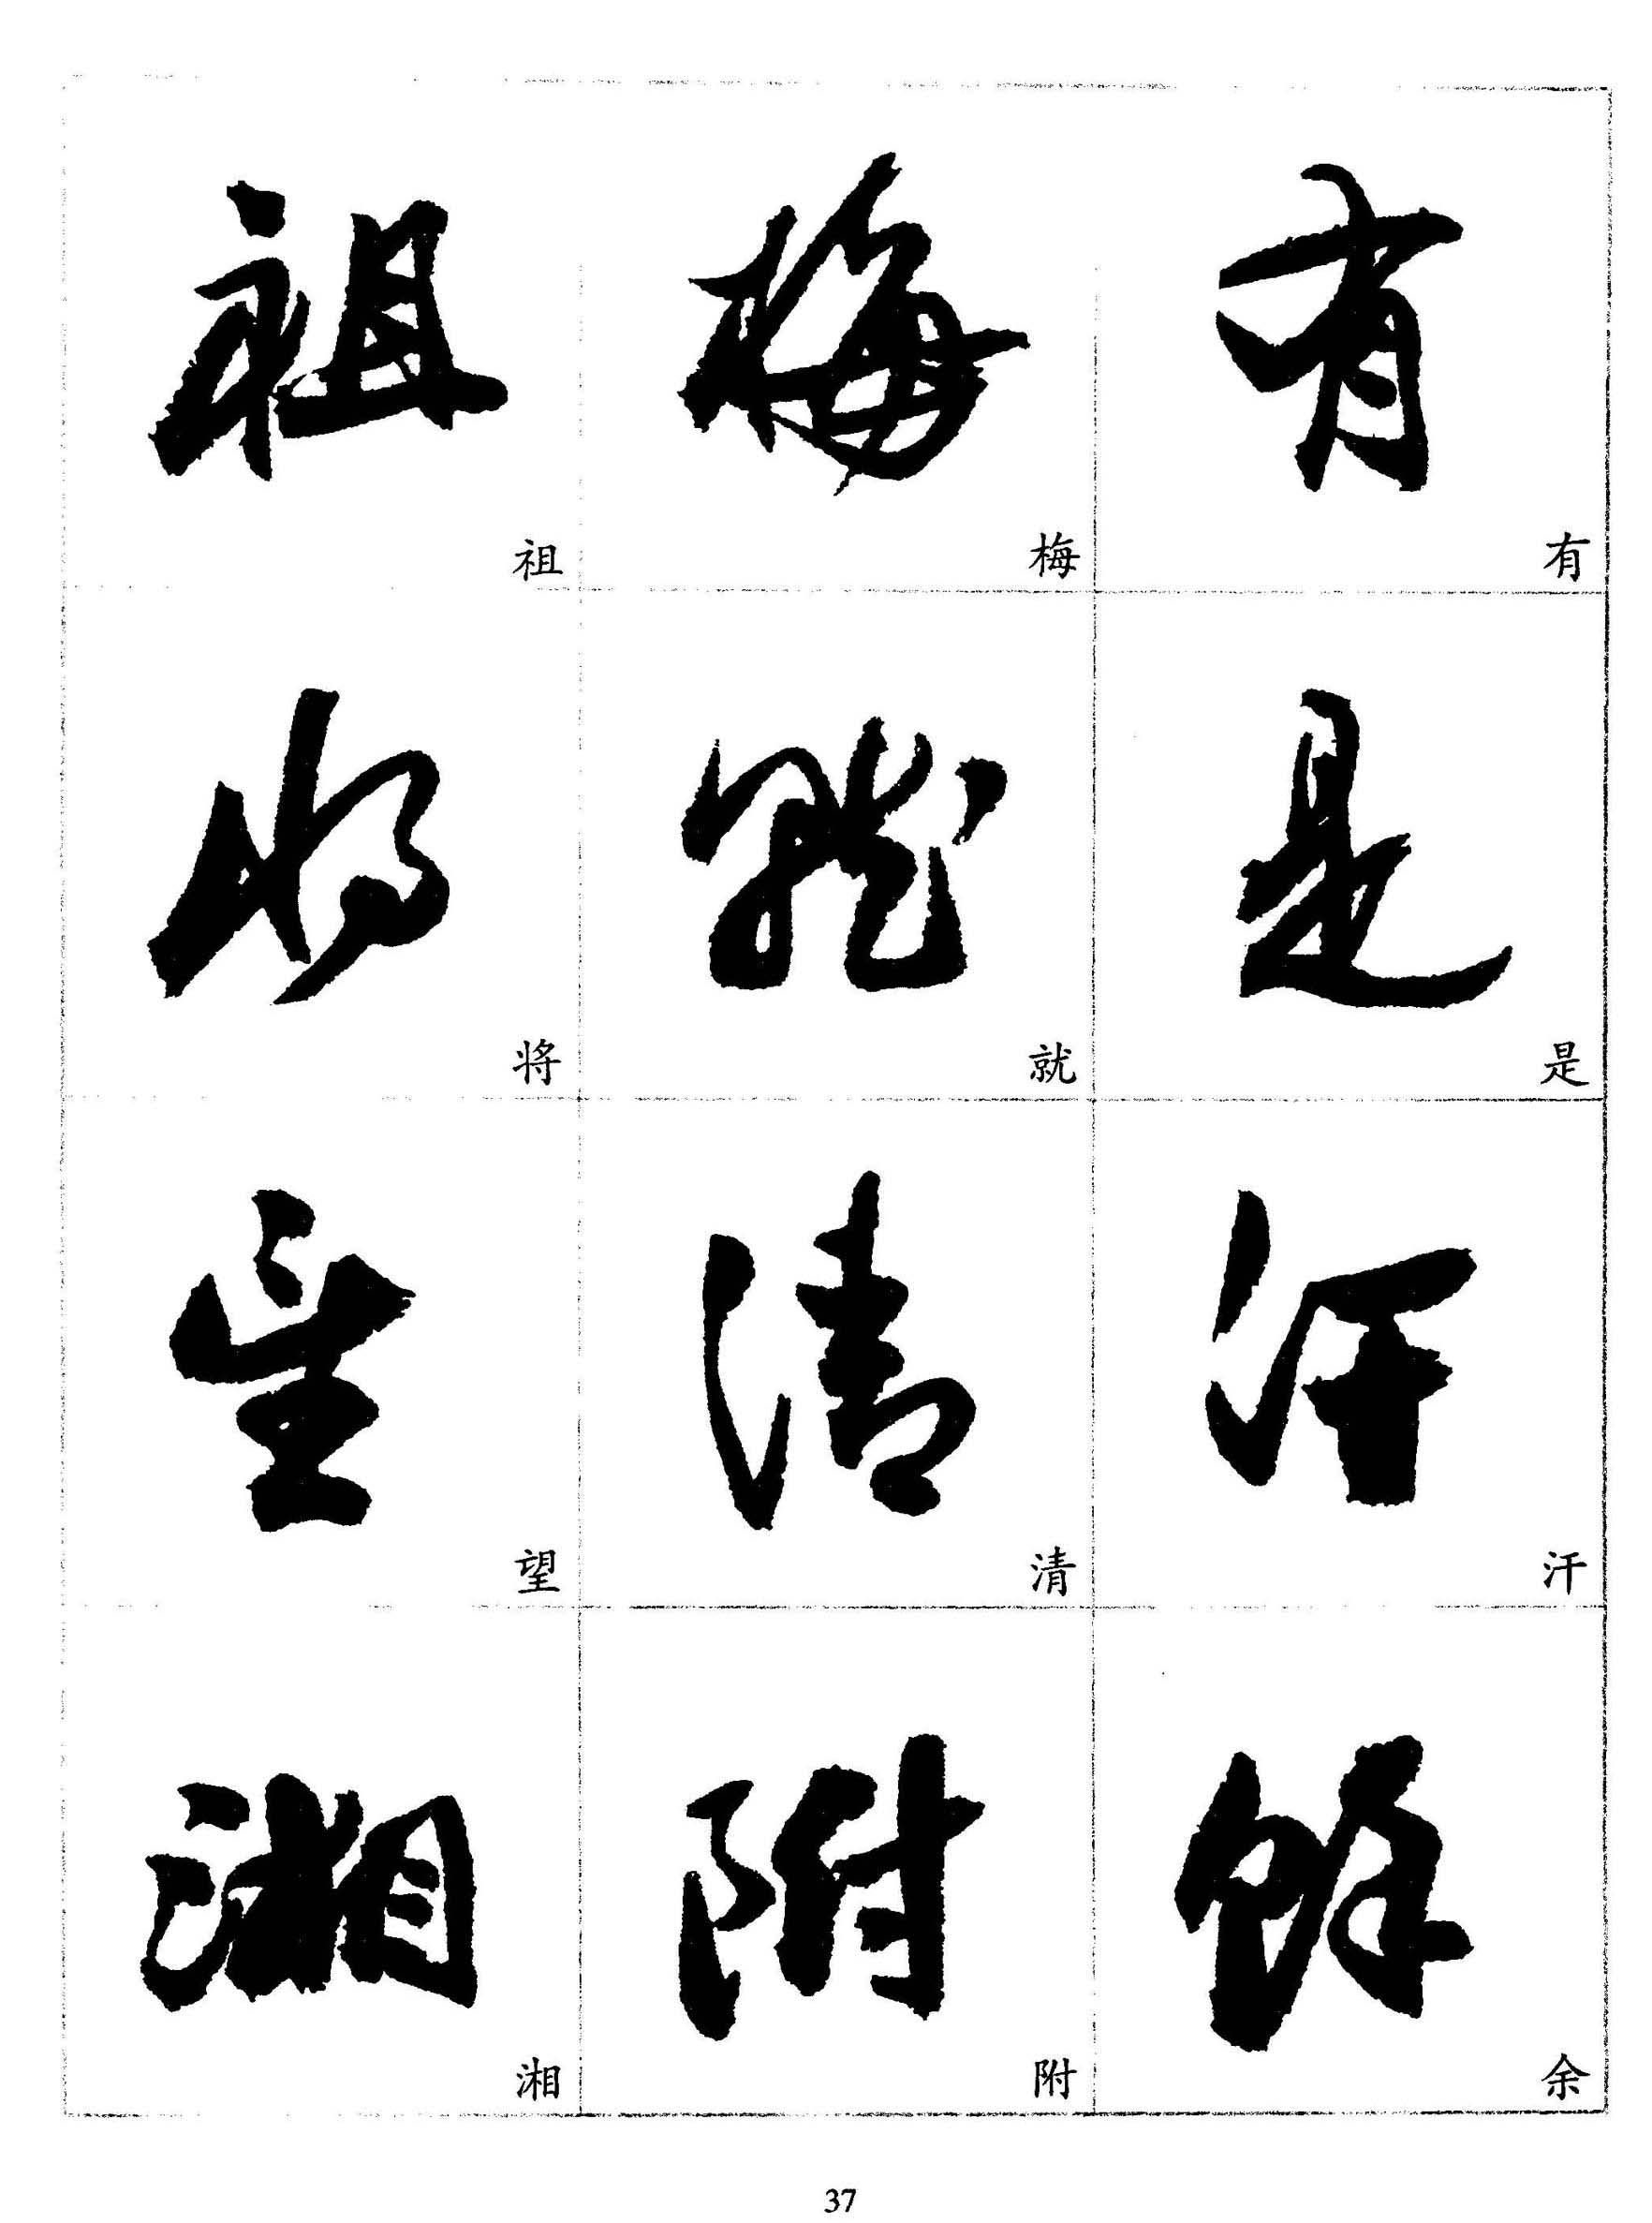 有
有
是
是
汗
汗
餘
余
梅
梅
就
就
清
清
附
附
祖
祖
将
将
望
望
湘
湘
37